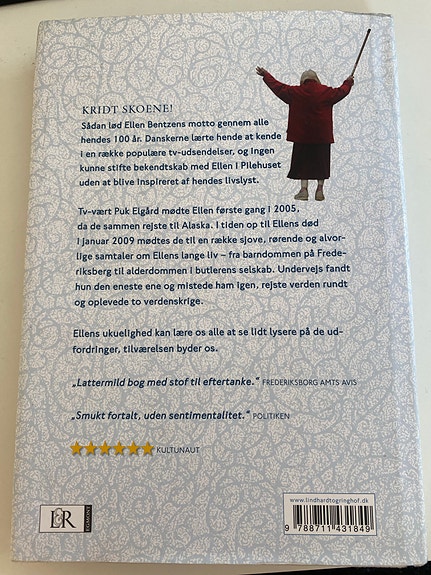 KRIDT SKOENE!
Sådan lød Ellen Bentzens motto gennem alle
hendes 100 år. Danskerne lærte hende at kende
i en række populære tv-udsendelser, og ingen
kunne stifte bekendtskab med Ellen i Pilehuset
uden at blive inspireret af hendes livslyst.
Tv-vært Puk Elgård mødte Ellen første gang i 2005,
da de sammen rejste til Alaska. I tiden op til Ellens død
i januar 2009 mødtes de til en række sjove, rørende og alvor-
lige samtaler om Ellens lange liv – fra barndommen på Frede-
riksberg til alderdommen i butlerens selskab. Undervejs fandt
hun den eneste ene og mistede ham igen, rejste verden rundt
og oplevede to verdenskrige.
Ellens ukuelighed kan lære os alle at se lidt lysere på de ud-
fordringer, tilværelsen byder os.
„Lattermild bog med stof til eftertanke.“ FREDERIKSBORG AMTS AVIS
„Smukt fortalt, uden sentimentalitet.“ POLITIKEN
KULTUNAUT
www.lindhardtogringhof.dk
L&R
EGMONT
9 788711 431849